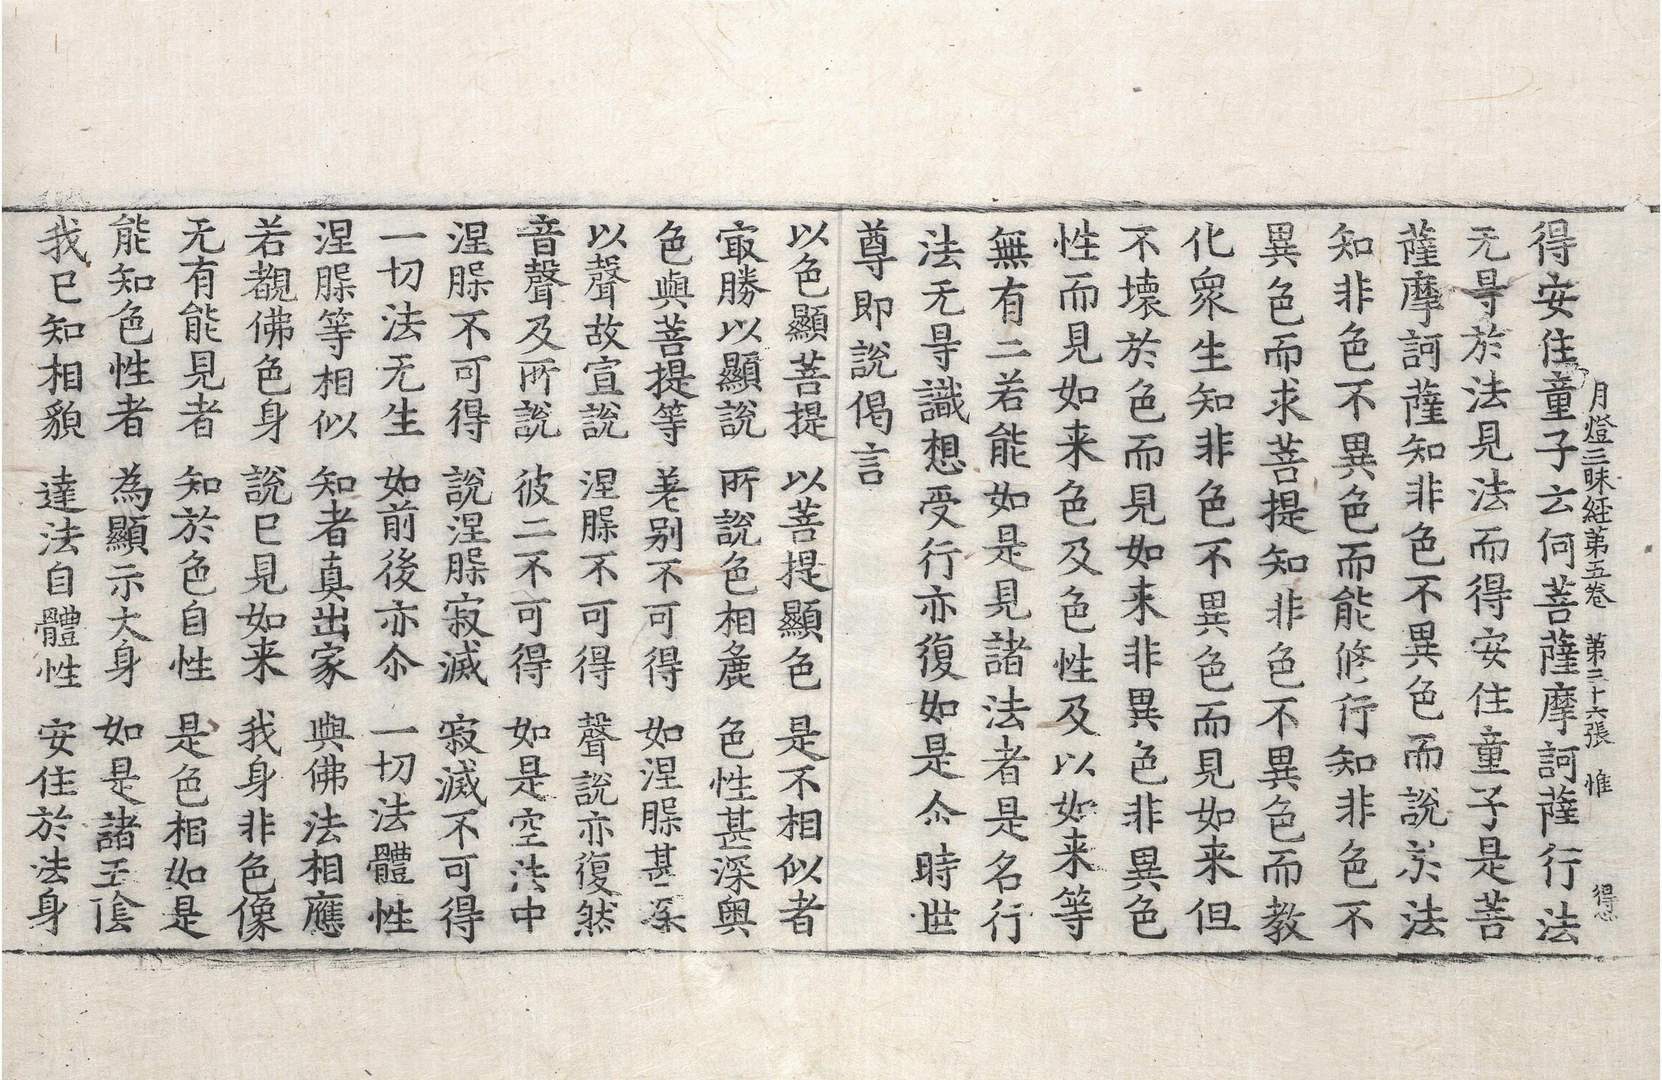 月燈三昧經第五卷　第三十六張　惟　得心
得安住童子云何菩薩摩訶薩行法
无㝵於法見法而得安住童子是菩
薩摩訶薩知非色不異色而說於法
知非色不異色而能修行知非色不
異色而求菩提知非色不異色而教
化衆生知非色不異色而見如来但
不壞於色而見如来非異色非異色
性而見如来色及色性及以如来等
無有二若能如是見諸法者是名行
法无㝵識想受行亦復如是尒時世
尊即說偈言
以色顯菩提　以菩提顯色　是不相似者
㝡勝以顯說　所說色相麁　色性甚深奥
色與菩提等　差别不可得　如涅槃甚深
以聲故宣說　涅槃不可得　聲說亦復然
音聲及所說　彼二不可得　如是空法中
涅槃不可得　說涅槃寂滅　寂滅不可得
一切法无生　如前後亦尒　一切法體性
涅槃等相似　知者真出家　與佛法相應
若覩佛色身　說已見如来　我身非色像
无有能見者　知於色自性　是色相如是
能知色性者　為顯示大身　如是諸五陰
我已知相貌　達法自體性　安住於法身